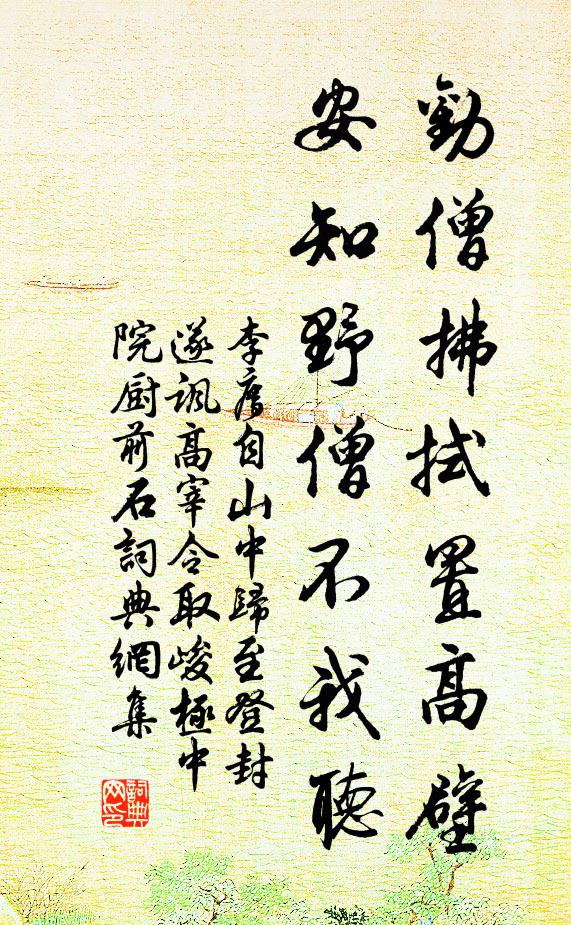 勸僧拂拭置高壁
安知野僧不我聽
李廌自山中歸至登封
遂諷高宰令取峻極中
院厨前石詞典網集
詞典
网印